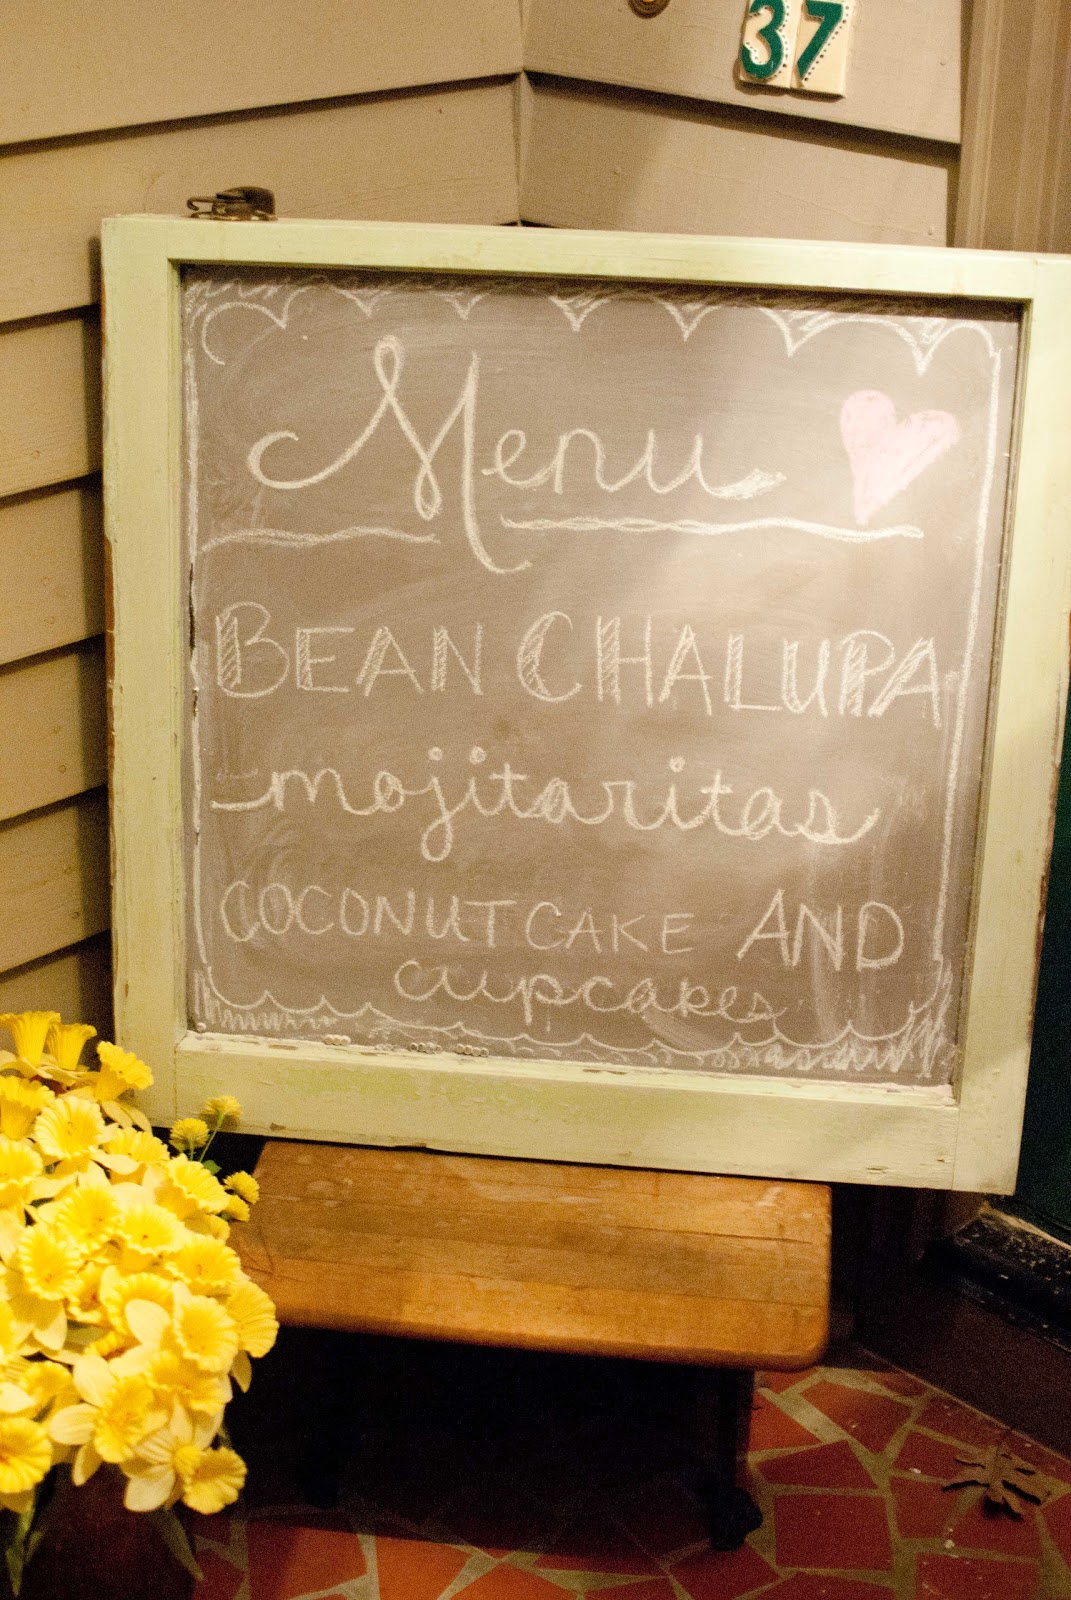 37
Menu
BEAN CHALUPA
-mojitaritas
COCONUT CAKE AND
cupcakes